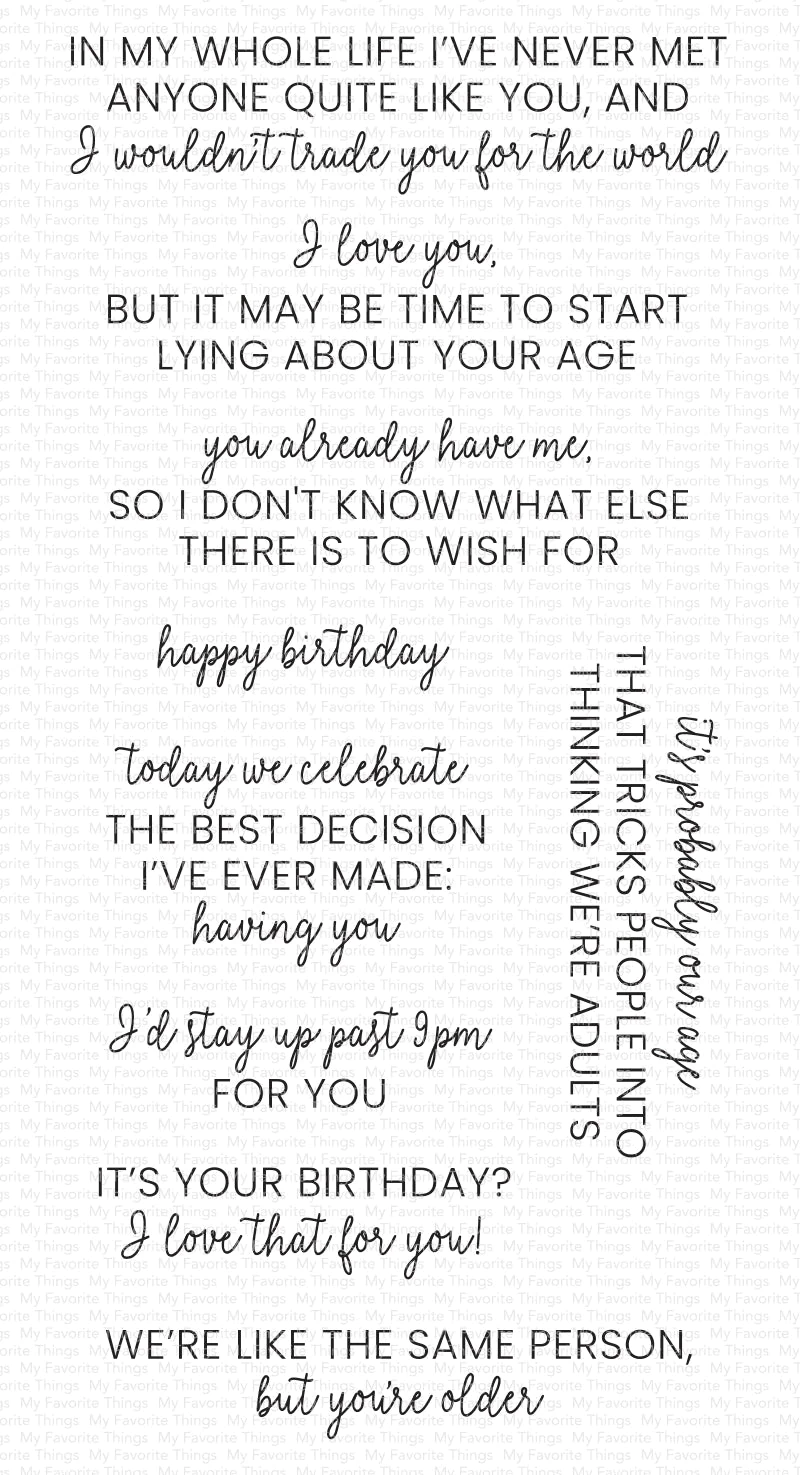 IN MY WHOLE LIFE I'VE NEVER MET
ANYONE QUITE LIKE YOU, AND
I wouldn't trade you for the world
I love you,
BUT IT MAY BE TIME TO START
LYING ABOUT YOUR AGE
you already have me,
SO I DON'T KNOW WHAT ELSE
THERE IS TO WISH FOR
happy birthday
today we celebrate
THE BEST DECISION
I'VE EVER MADE:
having you
I'd stay up past 9pm
FOR YOU
it's probably our age
THAT TRICKS PEOPLE INTO
THINKING WE'RE ADULTS
IT'S YOUR BIRTHDAY?
I love that for you!
WE'RE LIKE THE SAME PERSON,
but you're older
My Favorite Things